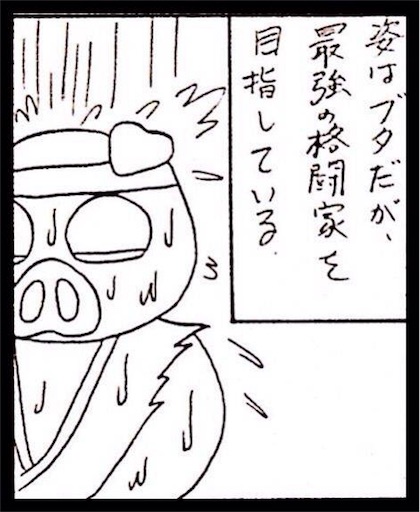 姿はブタだが、
最強の格闘家を
目指している.